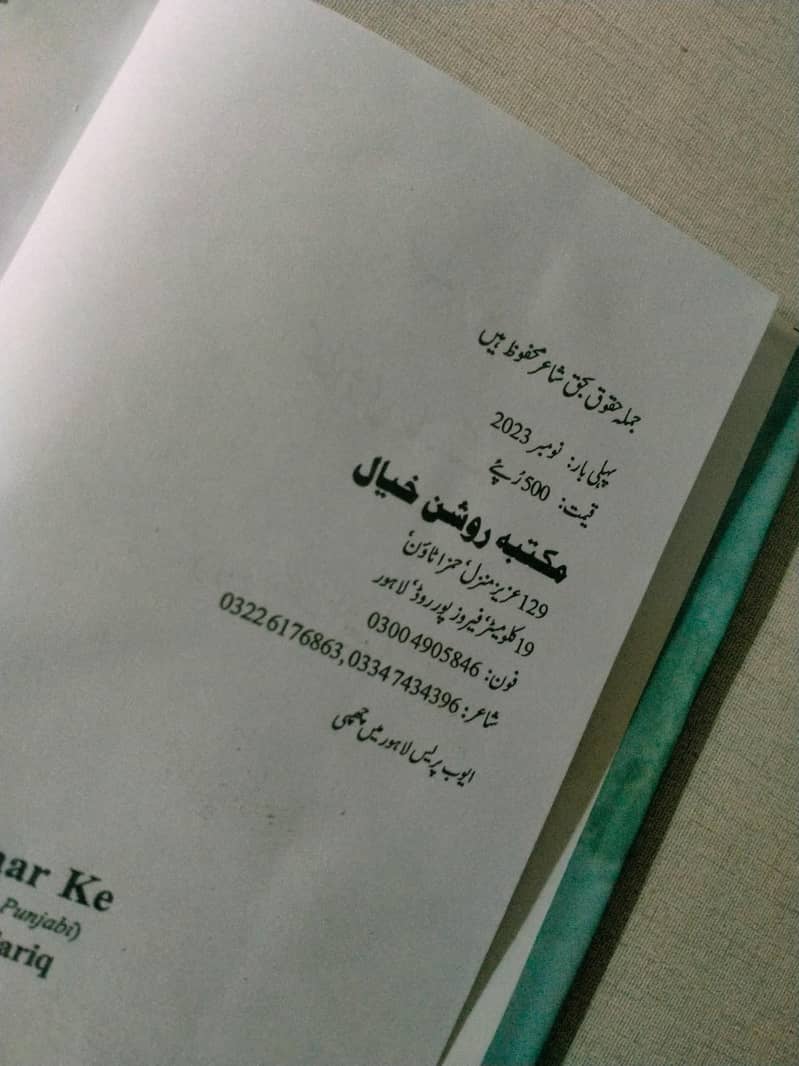 جملہ حقوق بحق شاعر محفوظ ہیں
پہلی بار: نومبر 2023
قیمت: 500 رُپئے
مکتبہ روشن خیال
129 عزیز منزل، حمزا ٹاؤن،
19 کلومیٹر، فیروز پور روڈ، لاہور
فون: 0300 4905846
شاعر: 0334 7434396, 0322 6176863
ایوب پریس لاہور میں چھپی
ar Ke
Punjabi)
ariq